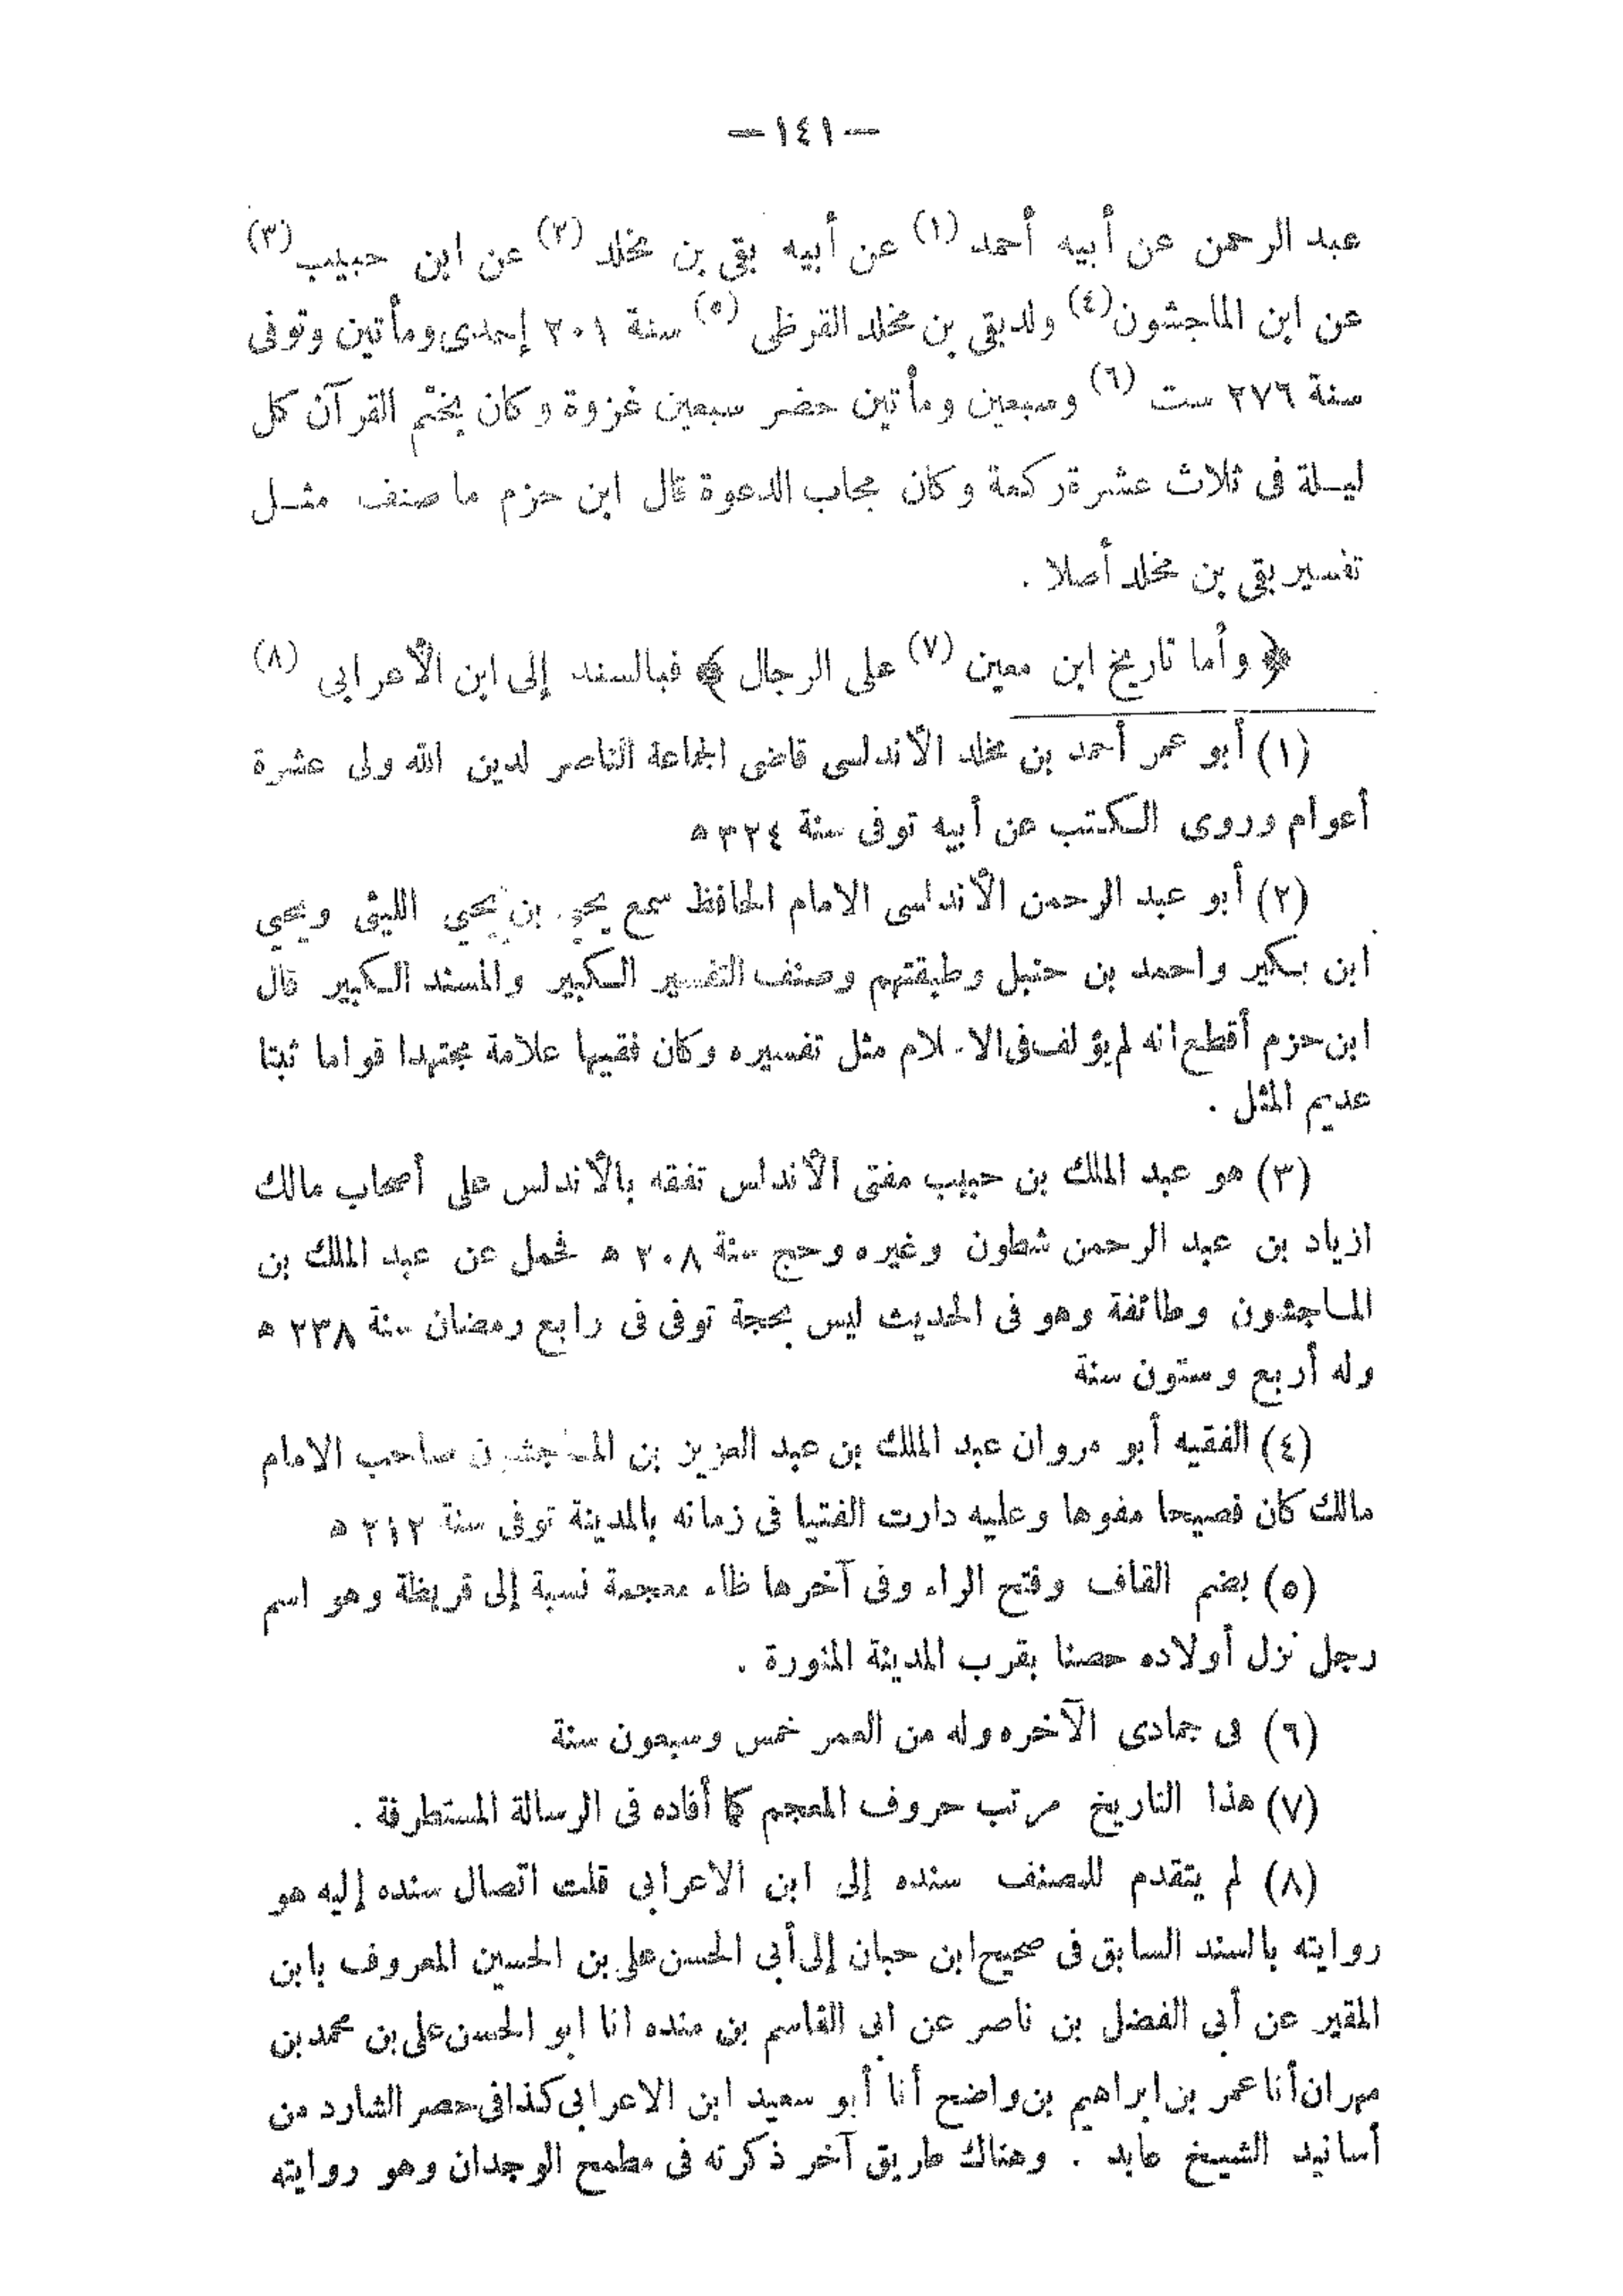 — ١٤١ —
عبد الرحمن عن أبيه أحمد (١) عن أبيه بقى بن مخلد (٢) عن ابن حبيب (٣)
عن ابن الماجشون (٤) ولد بقى بن مخلد القرظى (٥) سنة ٢٠١ إحدى ومأتين وتوفى
سنة ٢٧٦ ست (٦) وسبعين ومأتين حضر سبعين غزوة وكان يختم القرآن كل
ليلة فى ثلاث عشرة ركعة وكان مجاب الدعوة قال ابن حزم ما صنف مثل
تفسير بقى بن مخلد أصلا .
﴿ وأما تاريخ ابن معين (٧) على الرجال ﴾ فبالسند إلى ابن الأعرابى (٨)
(١) أبو عمر أحمد بن مخلد الأندلسى قاضى الجماعة الناصر لدين الله ولى عشرة
أعوام وروى الكتب عن أبيه توفى سنة ٣٢٤ ه
(٢) أبو عبد الرحمن الأندلسى الامام الحافظ سمع يحيى بن يحيي الليثى ويحيي
ابن بكير واحمد بن حنبل وطبقتهم وصنف التفسير الكبير والمسند الكبير قال
ابن حزم أقطع انه لم يؤلف فى الاسلام مثل تفسيره وكان فقيها علامة مجتهدا قواما ثبتا
عديم المثل .
(٣) هو عبد الملك بن حبيب مفتى الأندلس تفقه بالأندلس على أصحاب مالك
ازياد بن عبد الرحمن شطون وغيره وحج سنة ٢٠٨ ه فحمل عن عبد الملك بن
الماجشون وطائفة وهو فى الحديث ليس بحجة توفى فى رابع رمضان سنة ٢٣٨ ه
وله أربع وستون سنة
(٤) الفقيه أبو مروان عبد الملك بن عبد العزيز بن الماجشون صاحب الامام
مالك كان فصيحا مفوها وعليه دارت الفتيا فى زمانه بالمدينة توفى سنة ٢١٢ ه
(٥) بضم القاف وفتح الراء وفى آخرها ظاء معجمة نسبة إلى قريظة وهو اسم
رجل نزل أولاده حصنا بقرب المدينة المنورة .
(٦) فى جمادى الآخره وله من العمر خمس وسبعون سنة
(٧) هذا التاريخ مرتب حروف المعجم كما أفاده فى الرسالة المستطرفة .
(٨) لم يتقدم للمصنف سنده إلى ابن الاعرابى قلت اتصال سنده إليه هو
روايته بالسند السابق فى صحيح ابن حبان إلى أبى الحسن على بن الحسين المعروف بابن
المقير عن أبى الفضل بن ناصر عن ابى القاسم بن منده انا ابو الحسن على بن محمد بن
مهران أنا عمر بن ابراهيم بن واضح أنا أبو سعيد ابن الاعرابى كذا فى حصر الشارد من
أسانيد الشيخ عابد . وهناك طريق آخر ذكرته فى مطمح الوجدان وهو روايته